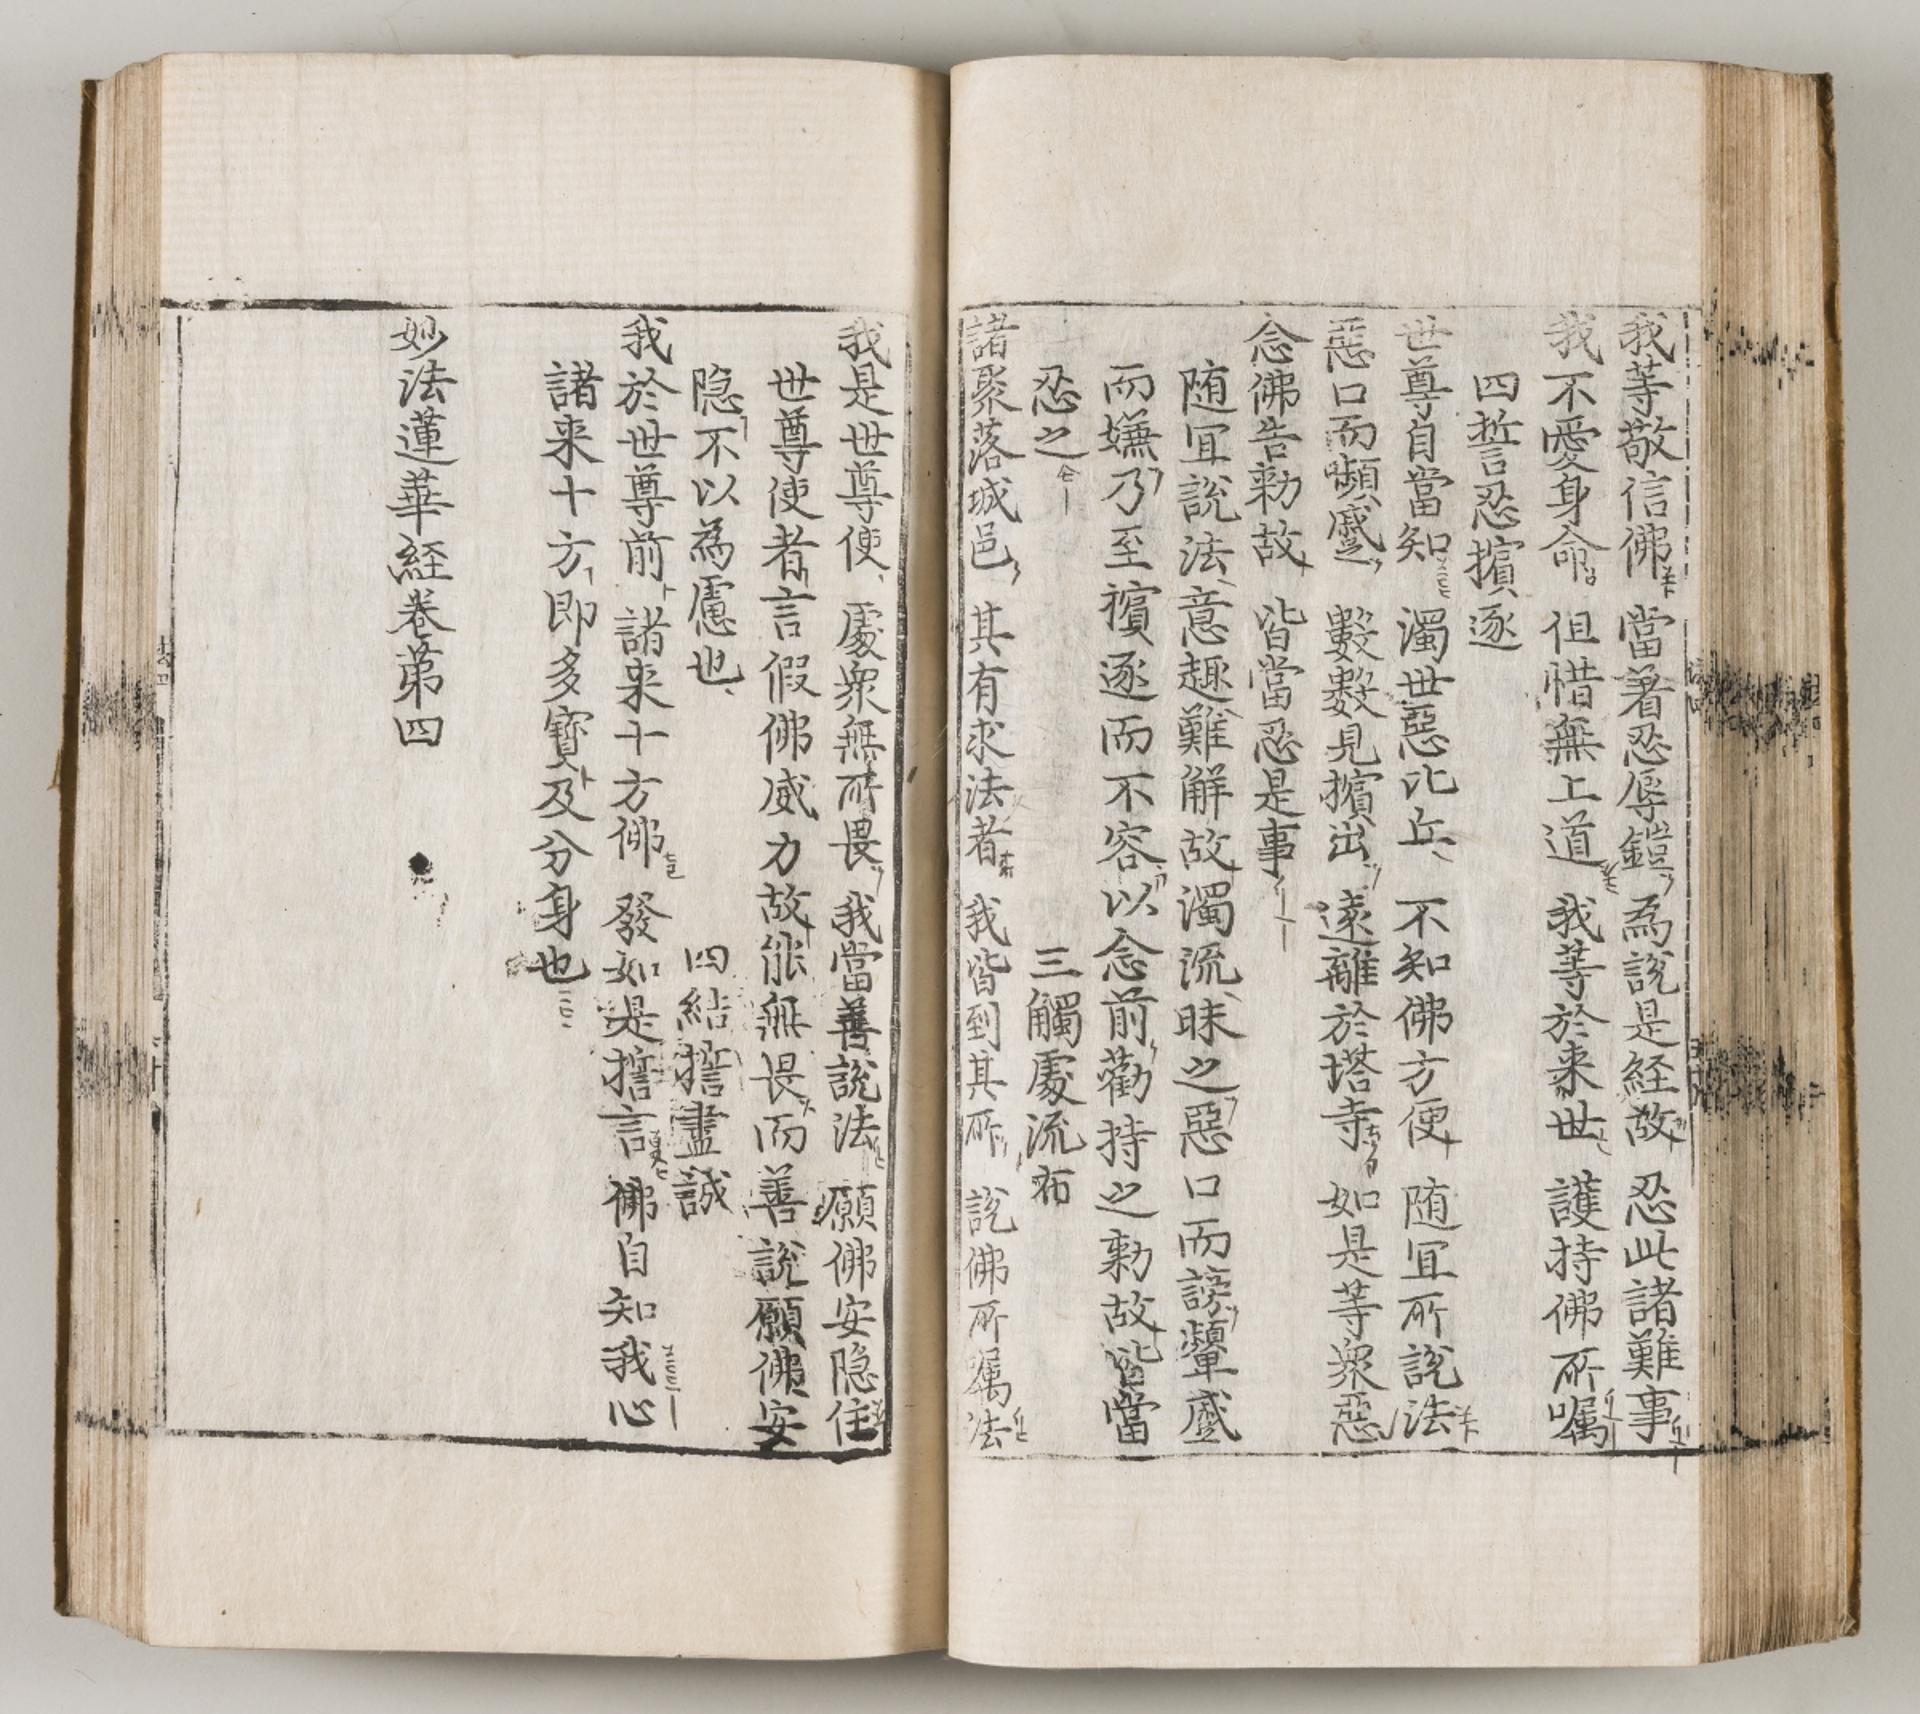 我等敬信佛 當著忍辱鎧 為說是経故 忍此諸難事
我不愛身命 但惜無上道 我等於来世 護持佛所嘱
四誓忍擯逐
世尊自當知 濁世惡比丘 不知佛方便 随冝所說法
惡口而顰蹙 數數見擯出 遠離於塔寺 如是等衆惡
念佛告勑故 皆當忍是事
随冝說法意趣難解故濁流昧之惡口而謗顰蹙
而嫌乃至擯逐而不容以念前勸持之勑故皆當
忍之 三觸處流布
諸聚落城邑 其有求法者 我皆到其所 說佛所嘱法
我是世尊使 處衆無所畏 我當善說法 願佛安隐住
世尊使者言假佛威力故能無畏而善說願佛安
隐不以為慮也 四結誓盡誠
我於世尊前 諸来十方佛 發如是誓言 佛自知我心
諸来十方即多寳及分身也
妙法蓮華経卷苐四